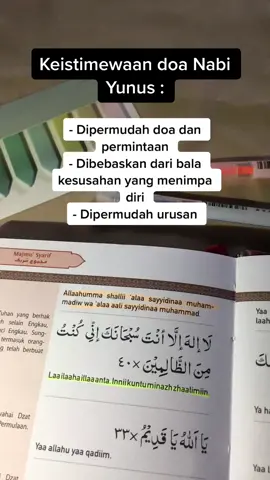 Keistimewaan doa Nabi
Yunus :
- Dipermudah doa dan
permintaan
- Dibebaskan dari bala
kesusahan yang menimpa
diri
- Dipermudah urusan
Majmu' Syarif
مجموع شريف
Allaahumma shallii 'alaa sayyidinaa muham-
madiw wa 'alaa aali sayyidinaa muhammad.
لَا إِلٰهَ إِلَّا أَنْتَ سُبْحَانَكَ إِنِّي كُنْتُ
مِنَ الظَّالِمِيْنَ ×٤٠
Laa ilaaha illaa anta. Innii kuntu minazh zhaalimiin.
يَا اَللّٰهُ يَا قَدِيْمُ ×٣٣
Yaa allahu yaa qadiim.
Tuhan yang berhak
h selain Engkau,
Engkau. Sung-
termasuk orang-
g telah berbuat
ahai Dzat
Permulaan.
Ya
laah
Ya ha
Yaa